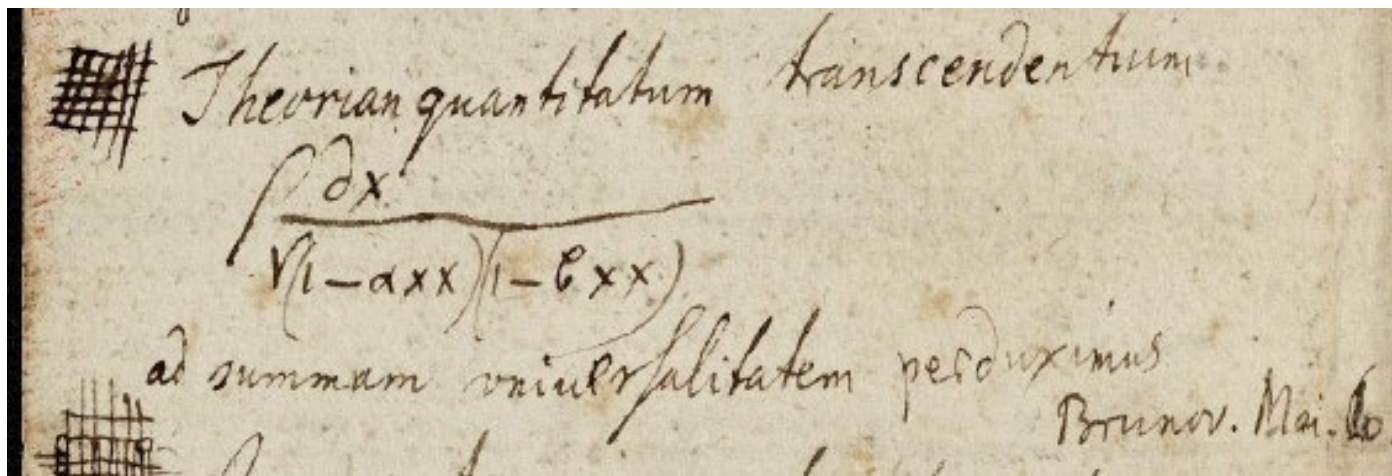 Theoriam quantitatum transcendentium
∫ ∂x / √(1−αxx)(1−βxx)
ad summam universalitatem perduximus
Brunov. Mai.